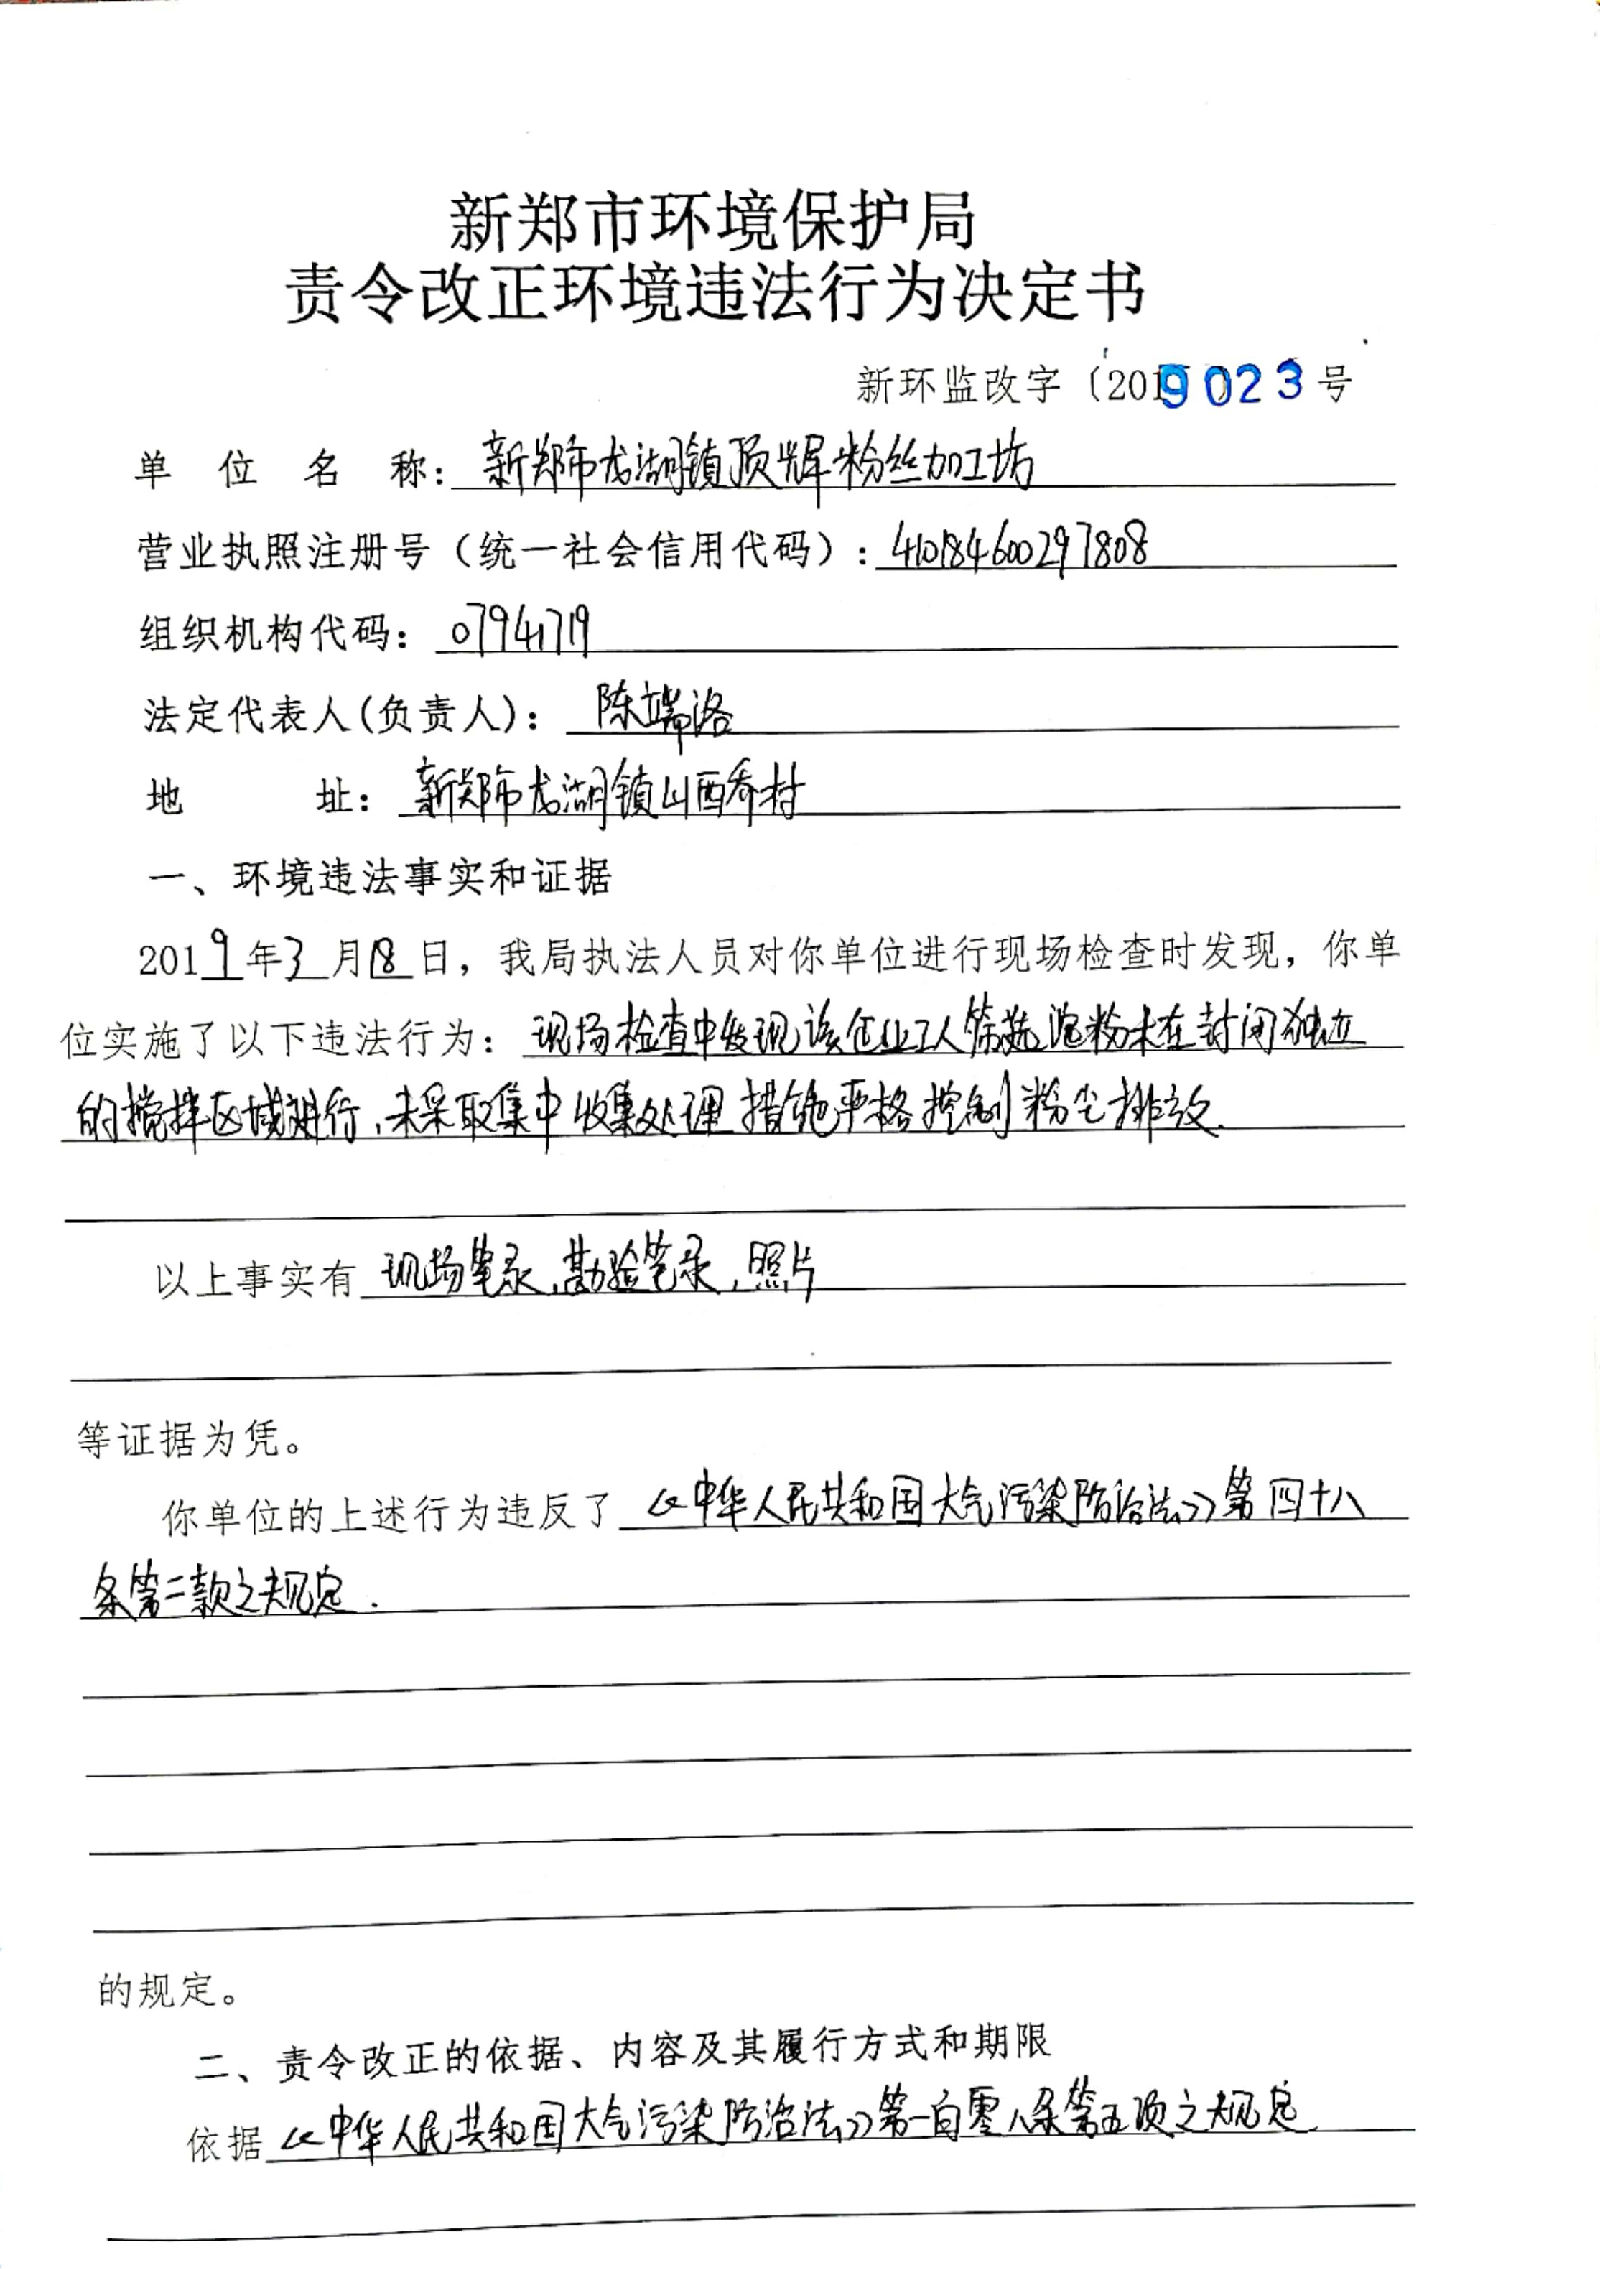 新郑市环境保护局
责令改正环境违法行为决定书
新环监改字〔2019 023号
单位名称：新郑市龙湖镇顶辉粉丝加工坊
营业执照注册号（统一社会信用代码）：410184600297808
组织机构代码：07941719
法定代表人(负责人)：陈端洛
地址：新郑市龙湖镇山西乔村
一、环境违法事实和证据
2019年3月18日，我局执法人员对你单位进行现场检查时发现，你单
位实施了以下违法行为：现场检查中发现该企业工人筛选淀粉未在封闭独立
的搅拌区域进行，未采取集中收集处理措施严格控制粉尘排放.
以上事实有现场笔录、勘验笔录、照片
等证据为凭。
你单位的上述行为违反了《中华人民共和国大气污染防治法》第四十八
条第二款之规定.
的规定。
二、责令改正的依据、内容及其履行方式和期限
依据《中华人民共和国大气污染防治法》第一百零八条第五项之规定